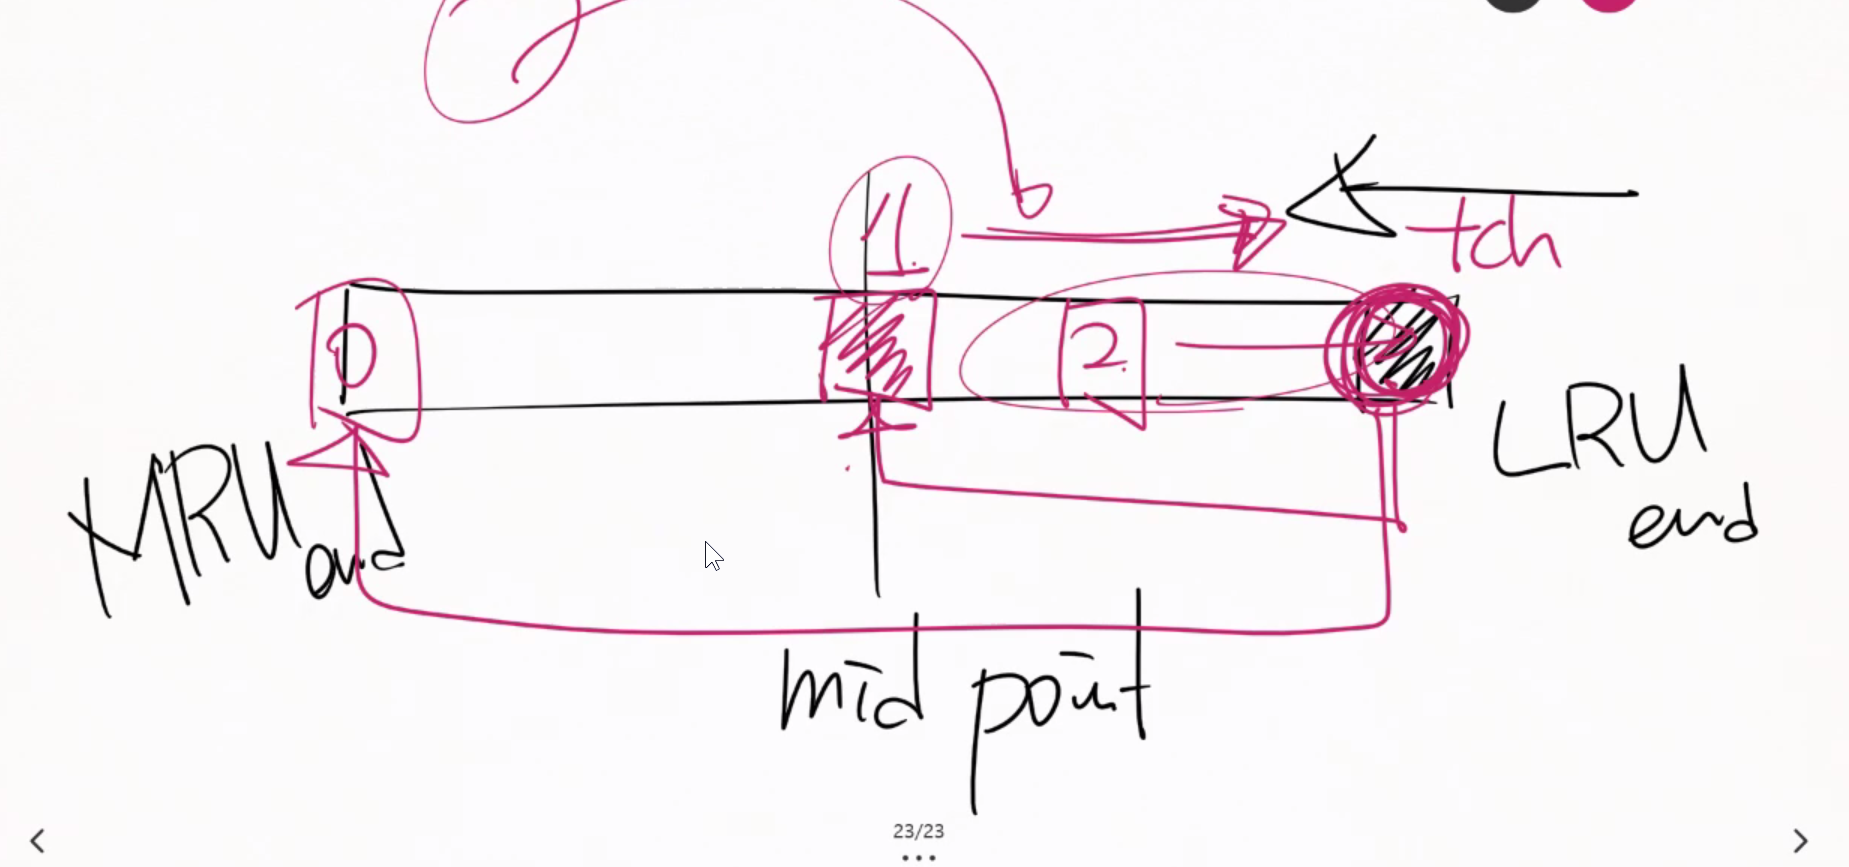 1
tch
0
2
MRU
end
LRU
end
mid point
23/23